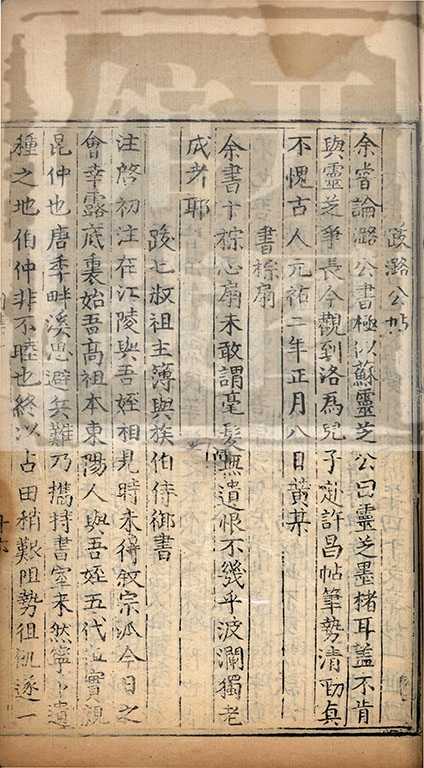 跋潞公帖
余嘗論潞公書極似蘇靈芝公曰靈芝墨楮耳蓋不肯
與靈芝爭長今觀到洛為兒子定許昌帖筆勢清勁真
不愧古人元祐二年正月八日黃某
書椶扇
余書十椶心扇未敢謂毫髮無遺恨不幾乎波瀾獨老
成者耶
跋七叔祖主簿與族伯侍御書
注啓初注在江陵與吾姪相見時未得敘宗派今日之
會幸露底裏始吾高祖本東陽人與吾姪五代祖實親
昆仲也唐季畔渙思避兵難乃攜持書室來然寧遺
種之地伯仲非不睦也終以占田稍艱阻勢徂飢逐一